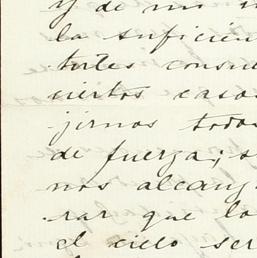 y de mi
la suficien
tortes consue
ciertos casos
jirnos todos
de fuerza; s
nos alcanz
rar que lo
el cielo ser